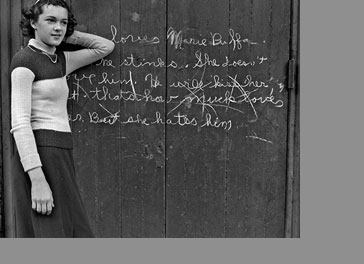 loves Marie Buffa
he stinks. She doesn't
him. He will kiss her
thats how much loves
But she hates him